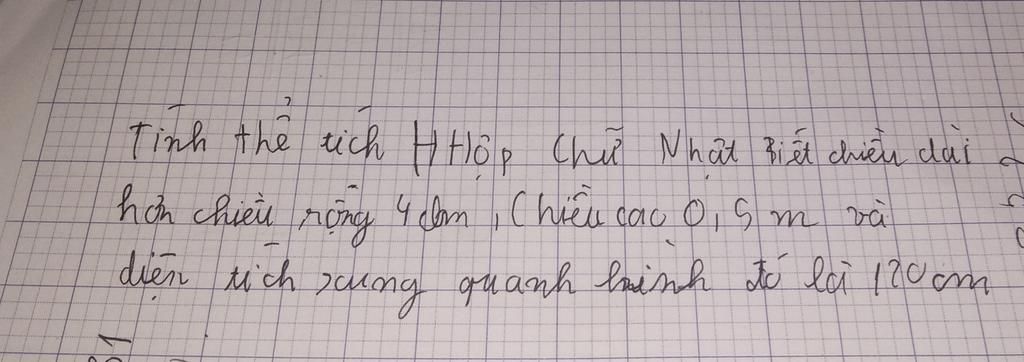 Tính thể tích H Hộp Chữ Nhật Biết chiều dài
hơn chiều rộng 4 dm, Chiều cao 0,5 m và
diện tích xung quanh hình đó là 120 cm